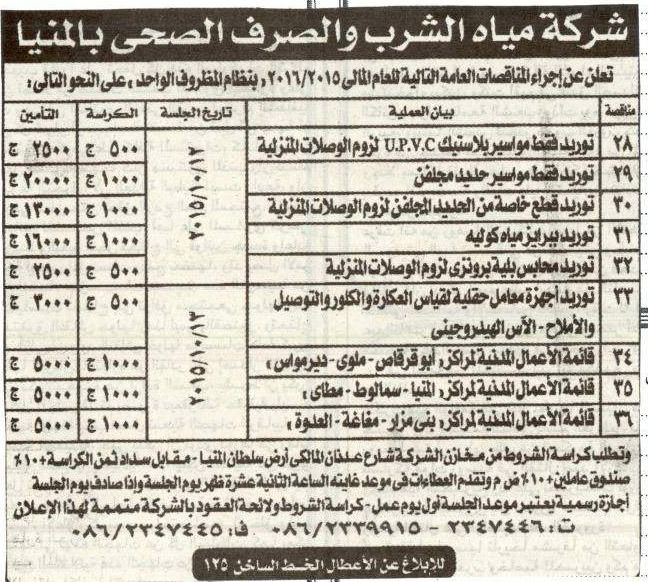 شركة مياه الشرب والصرف الصحى بالمنيا
تعلن عن إجراء المناقصات العامة التالية للعام المالى ٢٠١٦/٢٠١٥, بنظام المظروف الواحد, على النحو التالى:
مناقصة بيان العملية تاريخ الجلسة الكراسة التأمين
٢٨ توريد فقط مواسير بلاستيك U.P.V.C لزوم الوصلات المنزلية ٢٠١٥/١٠/١٢ ٥٠٠ ج ٢٥٠٠ ج
٢٩ توريد فقط مواسير حديد مجلفن ١٠٠٠ ج ٢٠٠٠٠ ج
٣٠ توريد قطع خاصة من الحديد المجلفن لزوم الوصلات المنزلية ١٠٠٠ ج ١٣٠٠٠ ج
٣١ توريد بيرايز مياه كوليه ١٠٠٠ ج ١٦٠٠٠ ج
٣٢ توريد محابس بلية برونزى لزوم الوصلات المنزلية ٥٠٠ ج ٢٥٠٠ ج
٣٣ توريد أجهزة معامل حقلية لقياس العكارة والكلور والتوصيل ٢٠١٥/١٠/١٣ ٥٠٠ ج ٣٠٠٠ ج
والأملاح - الآس الهيدروجينى
٣٤ قائمة الأعمال المدنية لمراكز, أبو قرقاص - ملوى - ديرمواس, ١٠٠٠ ج ٥٠٠٠ ج
٣٥ قائمة الأعمال المدنية لمراكز, المنيا - سمالوط - مطاى, ١٠٠٠ ج ٥٠٠٠ ج
٣٦ قائمة الأعمال المدنية لمراكز, بنى مزار - مغاغة - العدوة, ١٠٠٠ ج ٥٠٠٠ ج
وتطلب كراسة الشروط من مخازن الشركة شارع عدنان المالكى أرض سلطان المنيا - مقابل سداد ثمن الكراسة +١٠٪
صندوق عاملين +١٠٪ ض م وتقدم العطاءات فى موعد غايته الساعة الثانية عشرة ظهر يوم الجلسة وإذا صادف يوم الجلسة
أجازة رسمية يعتبر موعد الجلسة أول يوم عمل - كراسة الشروط ولائحة العقود بالشركة متممة لهذا الإعلان
ت: ٢٣٤٧٤٤٦ - ٠٨٦/٢٣٣٩٩١٥ ف: ٠٨٦/٢٣٤٧٤٤٥
للإبلاغ عن الأعطال الخط الساخن ١٢٥